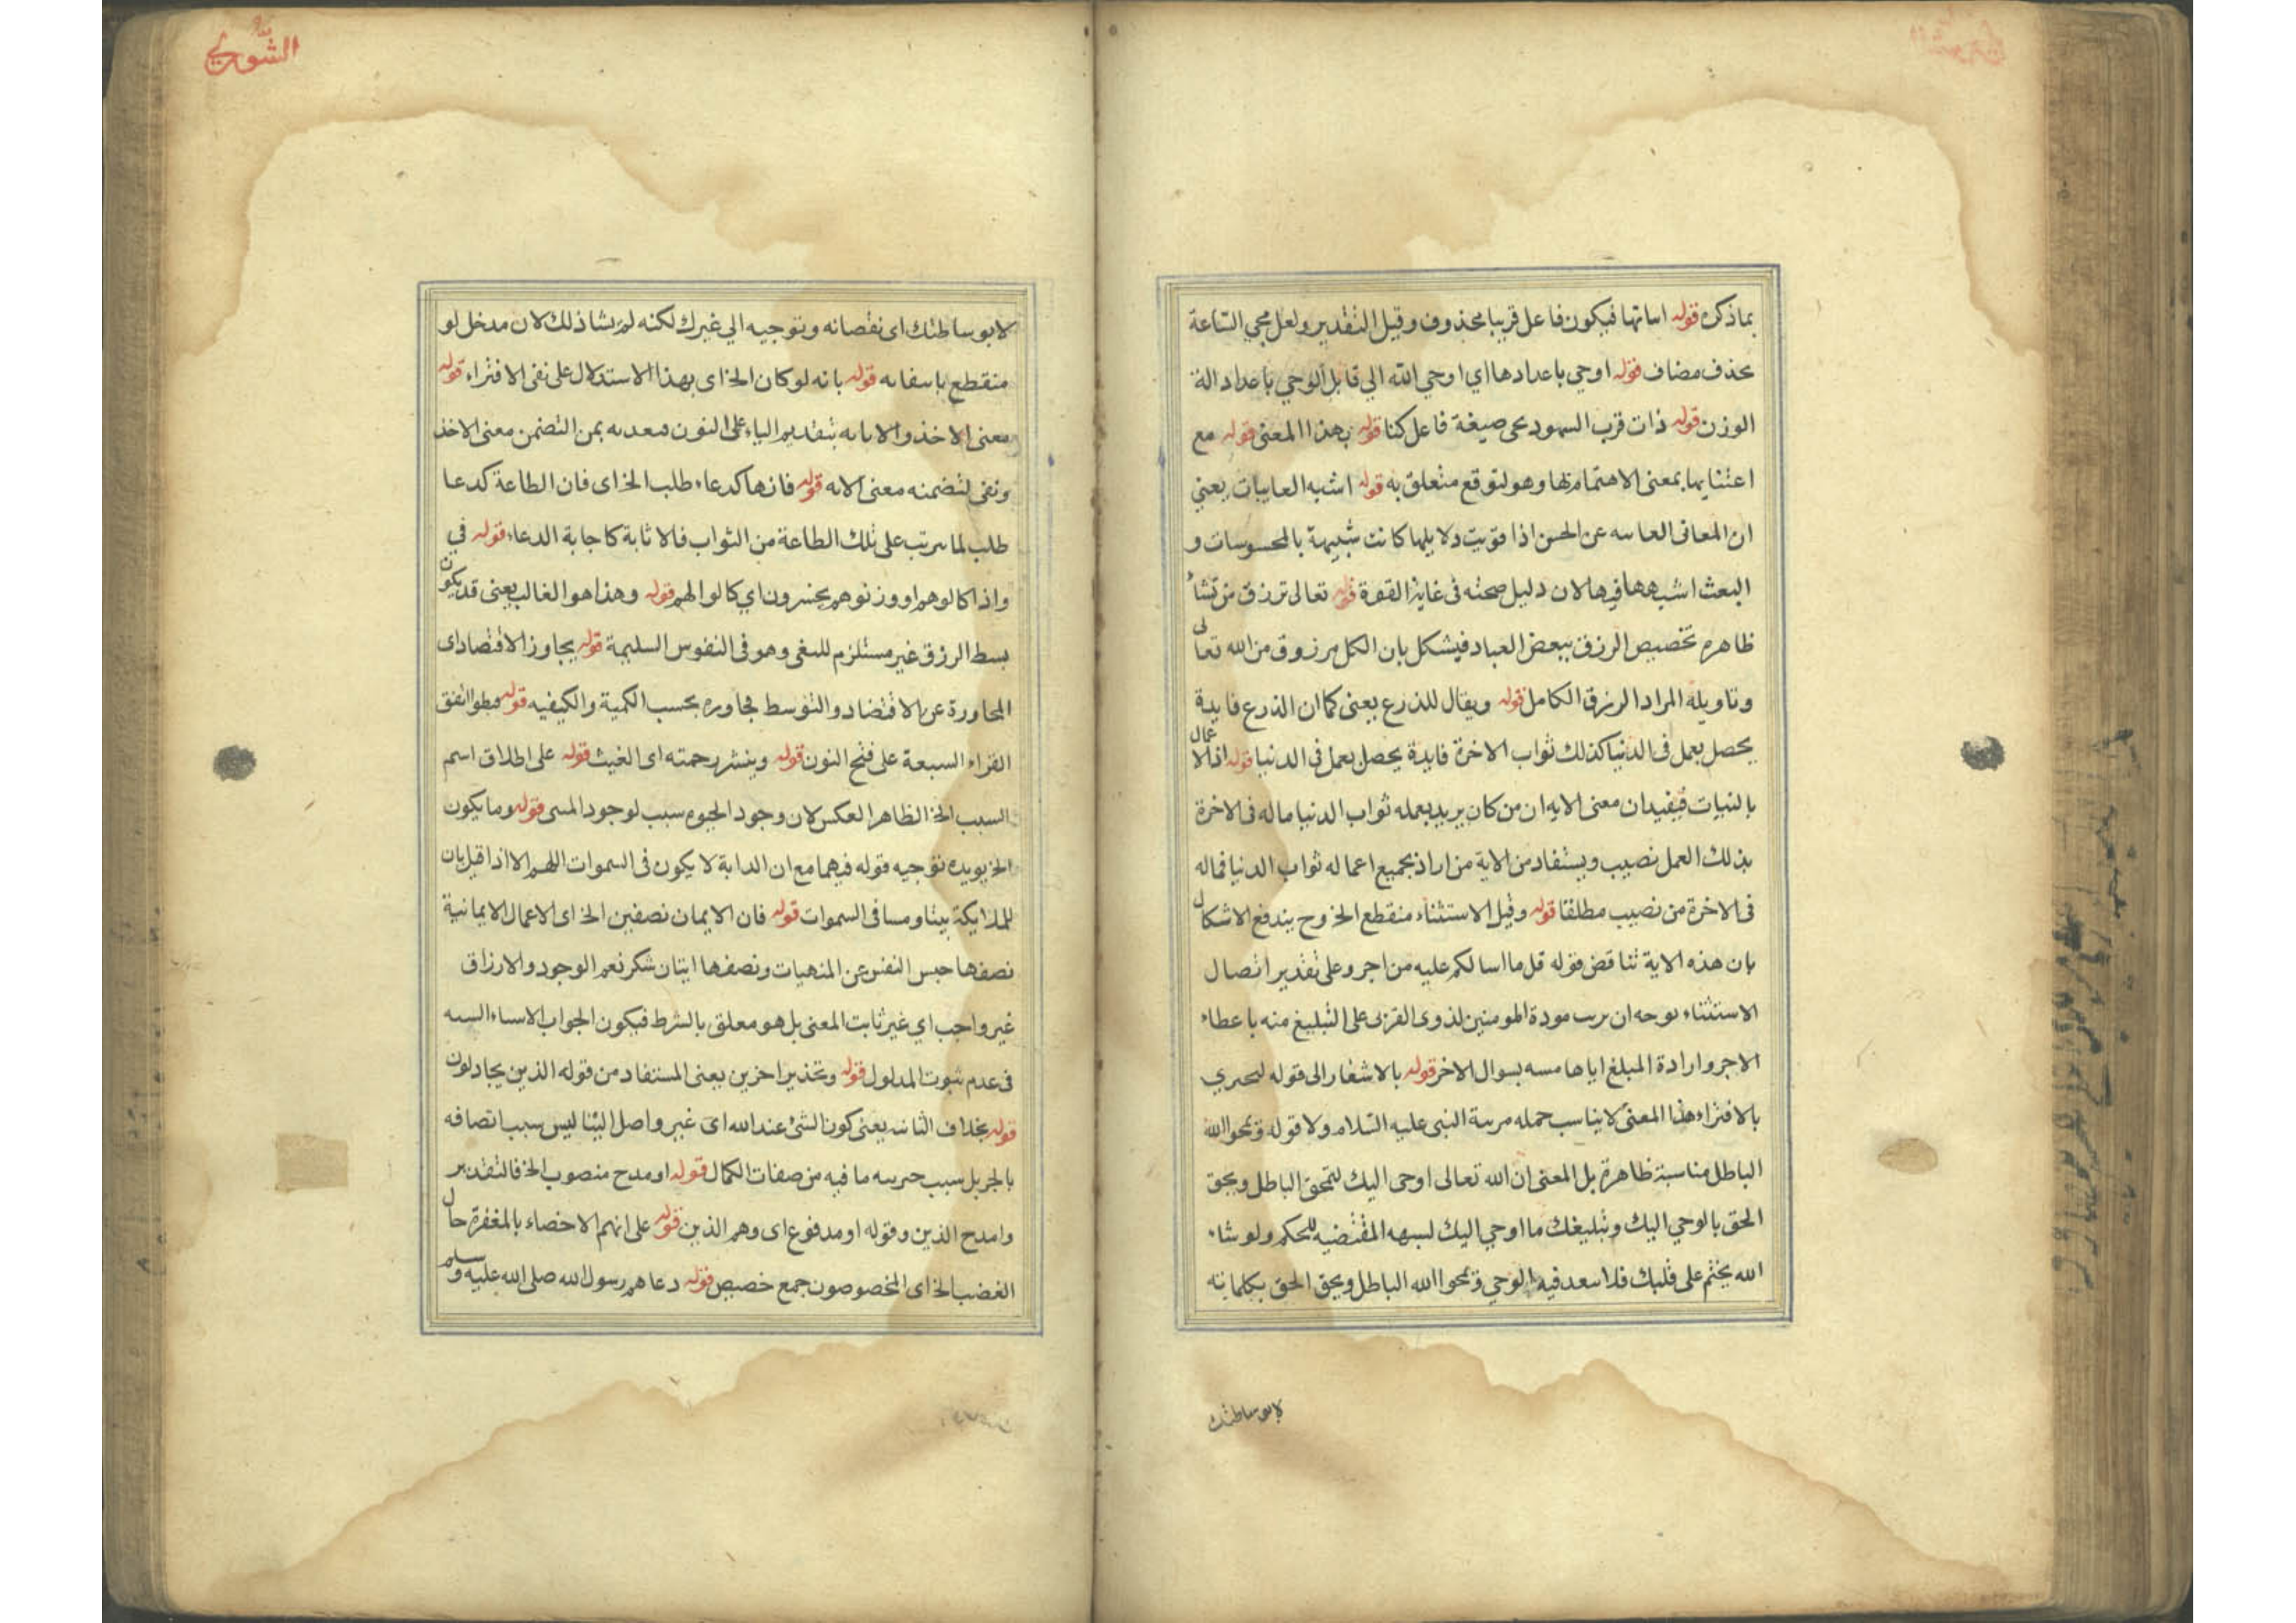 بما ذكره قوله اساتها فيكون فاعل قريبا محذوف وقيل التقدير ولعل مجي الساعة
بحذف مضاف قوله اوحي باعدادها اي اوحي الله الي قابل الوحي باعداد الة
الوزن قوله ذات قرب على صيغة فاعل كنا قوله بهذا المعنى قوله مع
اعتنايها بمعنى الاهتمام بها وهو لتوقع متعلق به قوله اشبه الغايبات يعني
ان المعانى العاىىه عن الحس اذا قويت دلايلها كانت شبيهة بالمحسوسات و
البعث اشبهها فيها لان دليل صحته فى غاية القوة قوله تعالى ترزق من تشاء
ظاهره تخصيص الرزق ببعض العباد فيشكل بان الكل مرزوق من الله تعالى
وتاويله المراد الرزق الكامل قوله ويقال للذرع يعنى كما ان الذرع فايدة
يحصل بعمل فى الدنيا كذلك ثواب الاخرة فايدة يحصل بعمل فى الدنيا قوله اذ الاعمال
بالنيات فيفيد ان معنى الايه ان من كان يريد بعمله ثواب الدنيا ماله فى الاخرة
بذلك العمل نصيب ويستفاد من الاية من اراد بجميع اعماله ثواب الدنيا فماله
فى الاخرة من نصيب مطلقا قوله وقيل الاستثناء منقطع الخ وح يندفع الاشكال
بان هذه الاية تناقض قوله قل ما اسالكم عليه من اجر وعلى تقدير اتصال
الاستثناء ىوحه ان ىرىب مودة المومنين لذوى القربى على التبليغ منه باعطاء
الاجر وارادة المبلغ اياها مسه بسوال الاخر قوله بالاشعار الى قوله
بالافتراء هذا المعنى لا يناسب حمله مرىىة النبى عليه السلام ولا قوله ويمحوا الله
الباطل مناسبة ظاهرة بل المعنى ان الله تعالى اوحى اليك لتمحق الباطل ويحق
الحق بالوحي اليك وتبليغك ما اوحي اليك المقتضيه للحكم ولو شاء
الله يختم على قلبك فلا ىىعد فيه الوحي ويمحوا الله الباطل ويحق الحق بكلماته
لابوساطتك
الشوري
لابوساطتك اى نفصانه وتوجيه الي غيرك لكنه لم يشا ذلك لان مدخل لو
منقطع باىىفاىه قوله بانه لو كان الخ اى بهذا الاستدلال على نفى الافتراء قوله
معنى الاخذ والاباىه بتقديم الياء على النون فىعدىه بمن التضمن معنى الاخذ
ونفى لتضمنه معنى الاىه قوله فانها كدعاء طلب الخ اى فان الطاعة كدعا
طلب لما ىىرىب على تلك الطاعة من الثواب فالاثابة كاجابة الدعاء قوله في
واذا كالوهم او وزنوهم يخسرون اي كالوا لهم قوله وهذا هو الغالب يعنى قد يكون
بسط الرزق غير مستلزم للبغى وهو فى النفوس السليمة قوله يجاوز الاقتصاد اى
المجاورة عن الاقتضاد والتوسط بحسب الكمية والكيفيه قوله قنطوا اتفق
القراء السبعة على فتح النون قوله وينشر رحمته اى الغيث قوله على اطلاق اسم
السبب الخ الظاهر العكس لان وجود الحيوه سبب لوجود المسى قوله وما يكون
الخ يويده توجيه قوله فيهما مع ان الدابة لا يكون فى السموات اللهم الا اذا قيل بان
للملايكة بيتا ومسا فى السموات قوله فان الايمان نصفين الخ اى الاعمال الايمانية
نصفها حبس النفس عن المنهيات ونصفها ايتان شكر نعم الوجود والارزاق
غير واجب اي غير ثابت المعنى بل هو معلق بالشرط فيكون الجواب الاسىاء السىه
فى عدم ثبوت المدلول قوله وتحذير احزين يعنى المستفاد من قوله الذين يجادلون
قوله بخلاف الثانىه يعنى كون الشئ عند الله اى غير واصل الينا ليس سبب اتصافه
بالجر بل سبب حىرىىه ما فيه من صفات الكمال قوله او مدح منصوب الخ فالتقدير
وامدح الذين وقوله او مدفوع اى وهم الذين قوله على انهم الاخصاء بالمغفرة حال
الغضب الخ اى المخصوصون جمع خصيص قوله دعاهم رسول الله صلى الله عليه وسلم